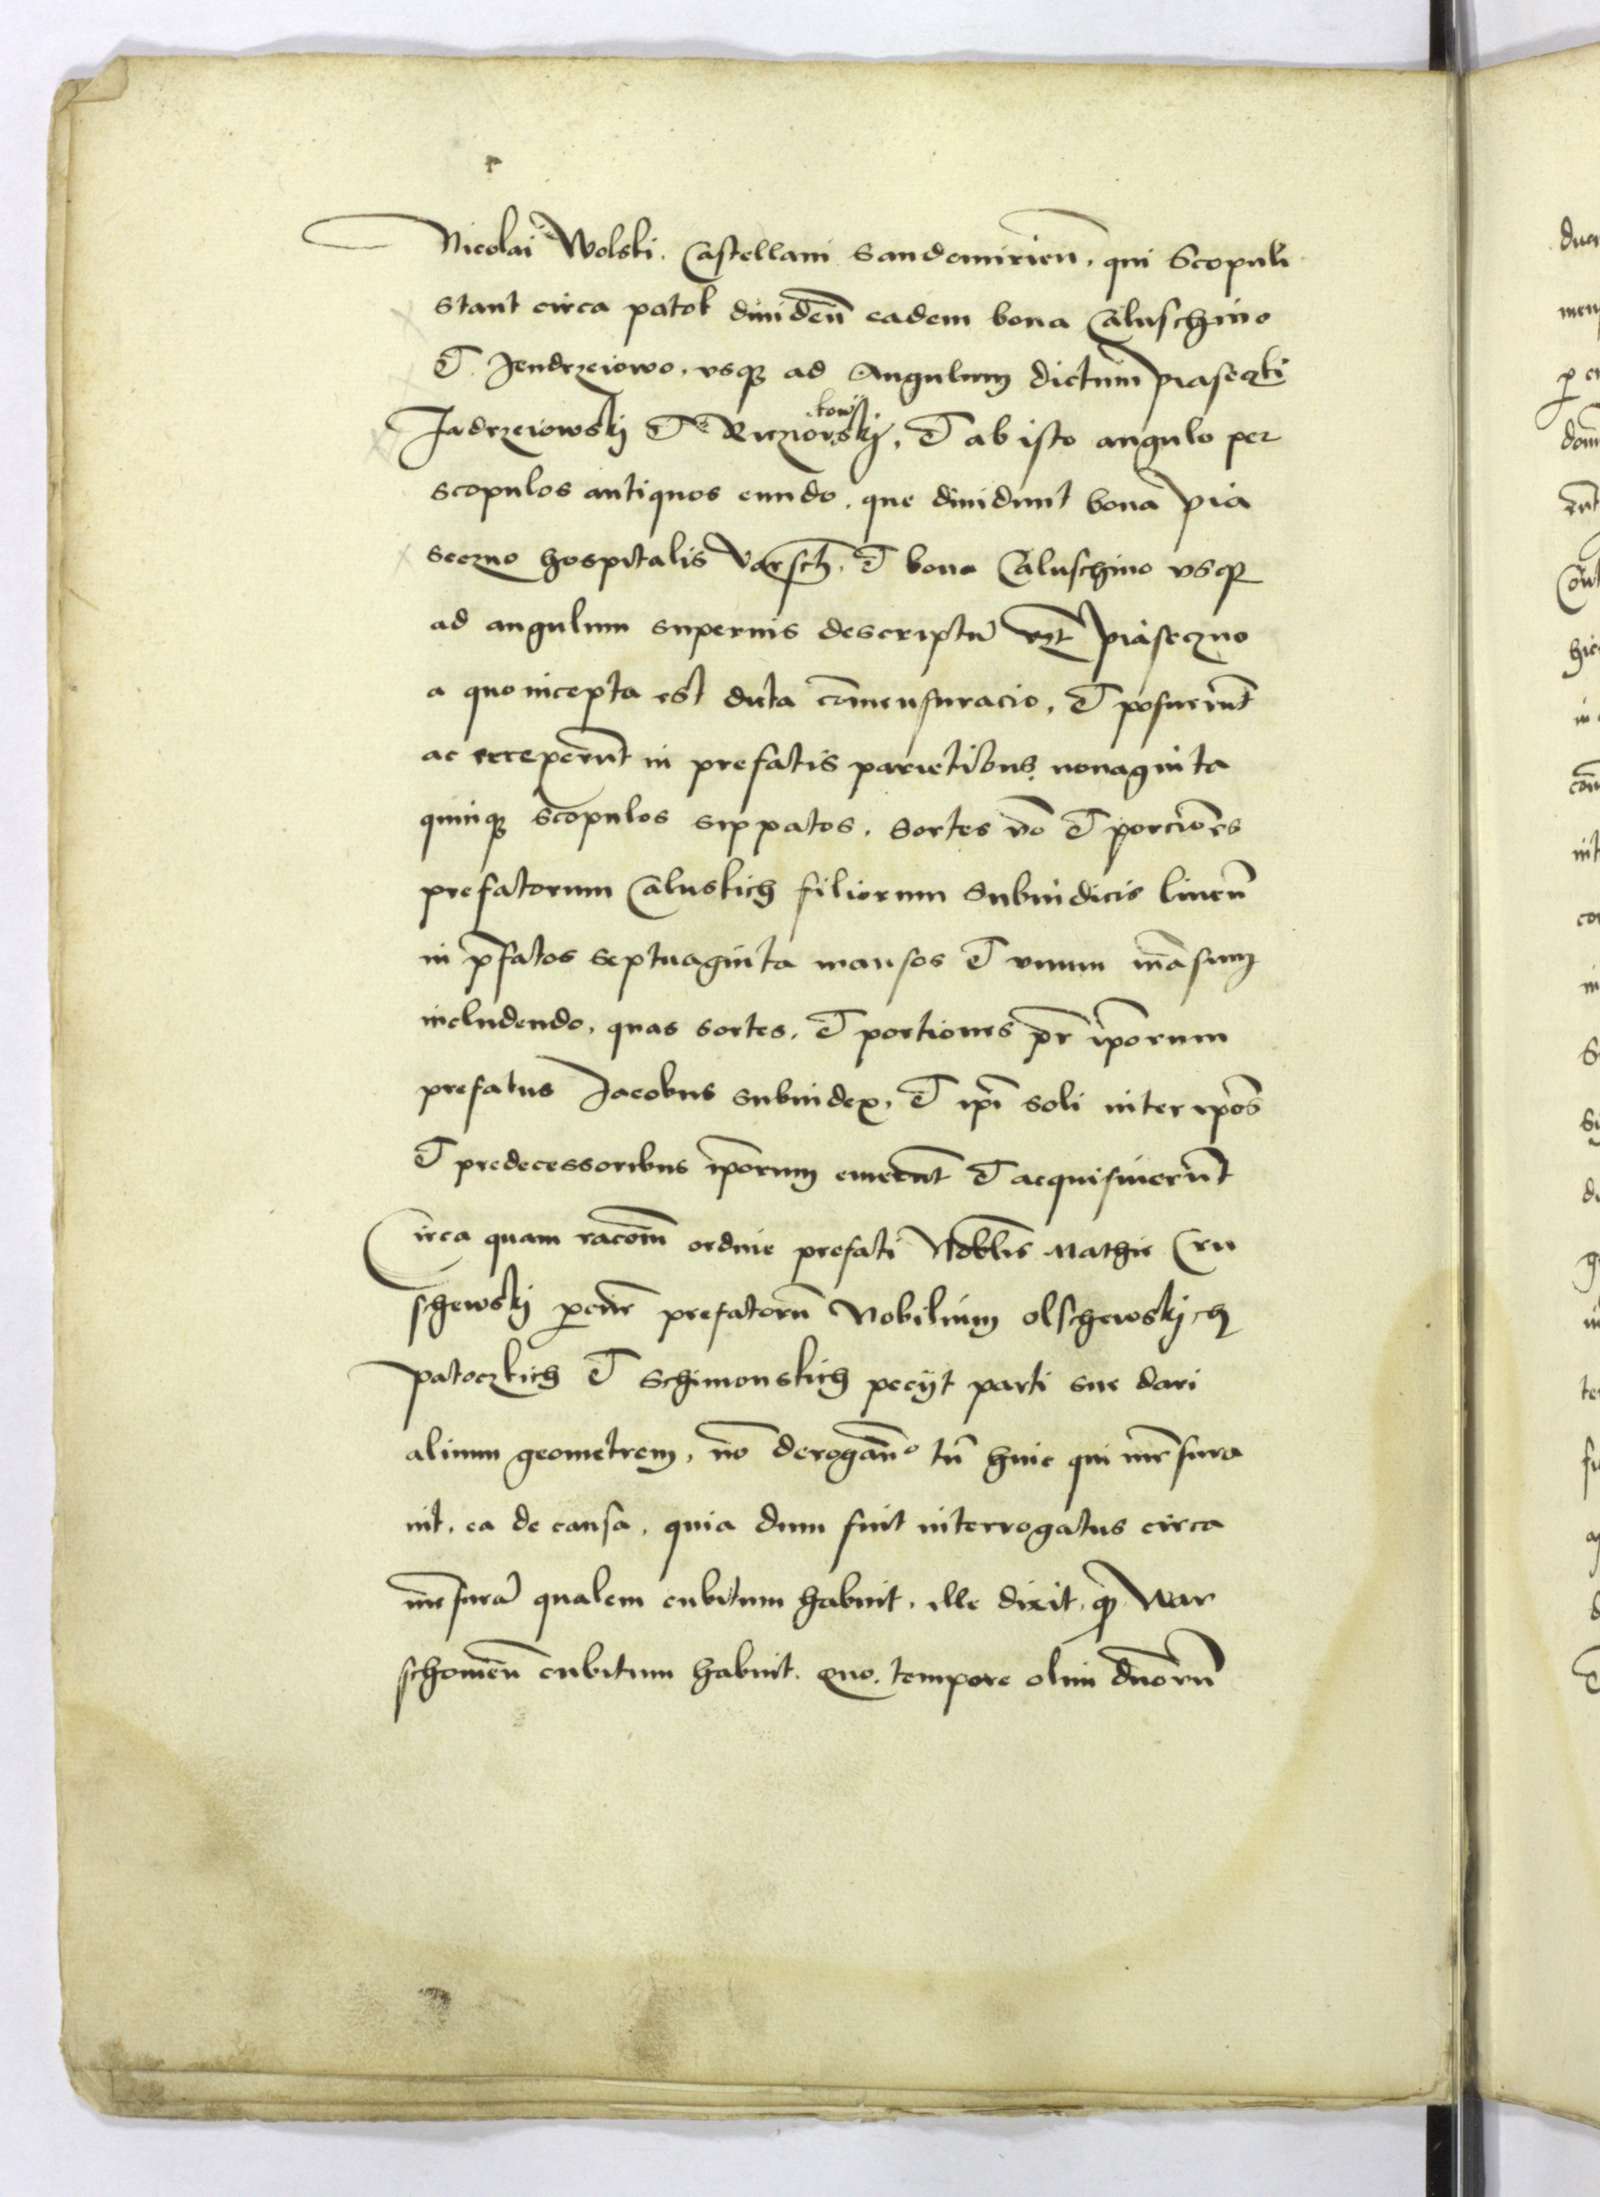 Nicolai Wolski. Castellani Sandomirien̄. qui Scopuli
stant circa patok diuiden̄ eadem bona Caluschino
Et Jendrzeiowo. vsq3 ad Angulum dictum piaseczki
Jadrzeiowski Et Ruziorski kowski. Et ab isto angulo per
scopulos antiquos eundo. que diuidunt bona pia
seczno hospitalis Varsch. Et bona Caluschino vsq3
ad angulum superius descriptū vz̄t piaseczno
a quo incepta est dicta com̄ensuracio. Et posuerūt
ac receperūt in prefatis parietibus nonaginta
quinq3 scopulos sippatos. Sortes v̄o Et porcio̅es
prefatorum Caluskich filiorum Subiudicis liuen̄
in p̄fatos septuaginta mansos Et vnum māsum
includendo. quas sortes. Et portiones p̄r ip̄orum
prefatus Jacobus subiudex. Et ip̄i soli inter ip̄os
Et predecessoribus ip̄orum emerūt Et acquisiuerūt
Circa quam racōem ordine prefati Nobl̄is Mathie Cru
schewskj p̄cur̄ prefatorū Nobilium olschewskich
patoczkich Et Schimonskich peciit parti sue dari
alium geometrem. nō derogan̄o tn̄ huic qui mēsura
uit. ea de causa. quia dum fuit interrogatus circa
mēsurā qualem cubitum habuit. ille dixit. q3 War
schouien̄ cubitum habuit. Quo. tempore olim duorū